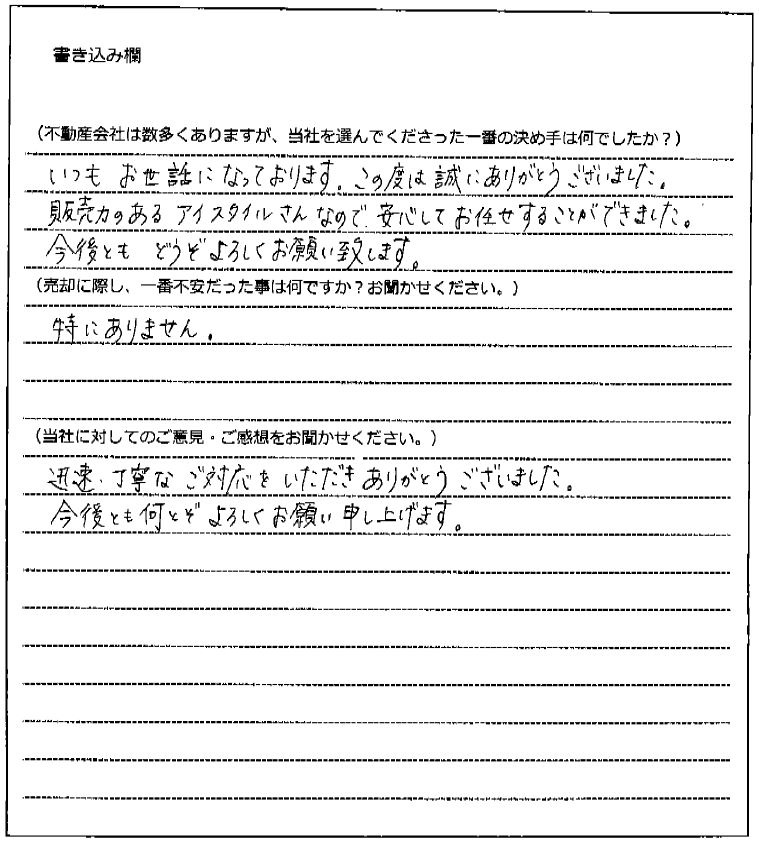 書き込み欄
(不動産会社は数多くありますが、当社を選んでくださった一番の決め手は何でしたか?)
いつも お世話になっております。この度は誠にありがとうございました。
販売力のある アイスタイルさんなので、安心してお任せすることができました。
今後とも どうぞよろしくお願い致します。
(売却に際し、一番不安だった事は何ですか?お聞かせください。)
特にありません。
(当社に対してのご意見・ご感想をお聞かせください。)
迅速・丁寧な ご対応を いただき ありがとうございました。
今後とも何とぞ よろしくお願い申し上げます。